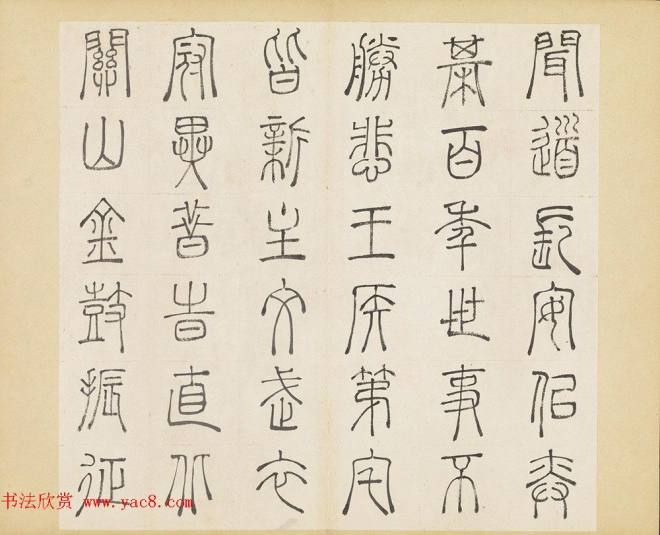 聞道長安佀弈
棊百年世事不
勝悲王侯第宅
皆新主文武衣
冠異昔旹直北
關山金鼓振征
书法欣赏 www.yac8.com